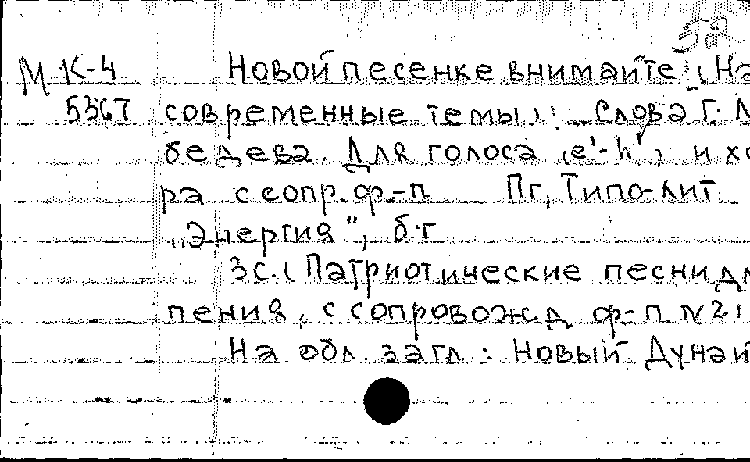 52
М К-4 Новой песенке внимайте! (На
5367 современные темы): Слова Г. Ле
бедева. Для голоса (e'-h') и хо
ра с сопр. ф.-п Пг, Типо-лит
„Энергия", б.г
3с. (Патриотические песни дл
пения, с сопровожд ф-п №2)
На обл загл: Новый Дунай